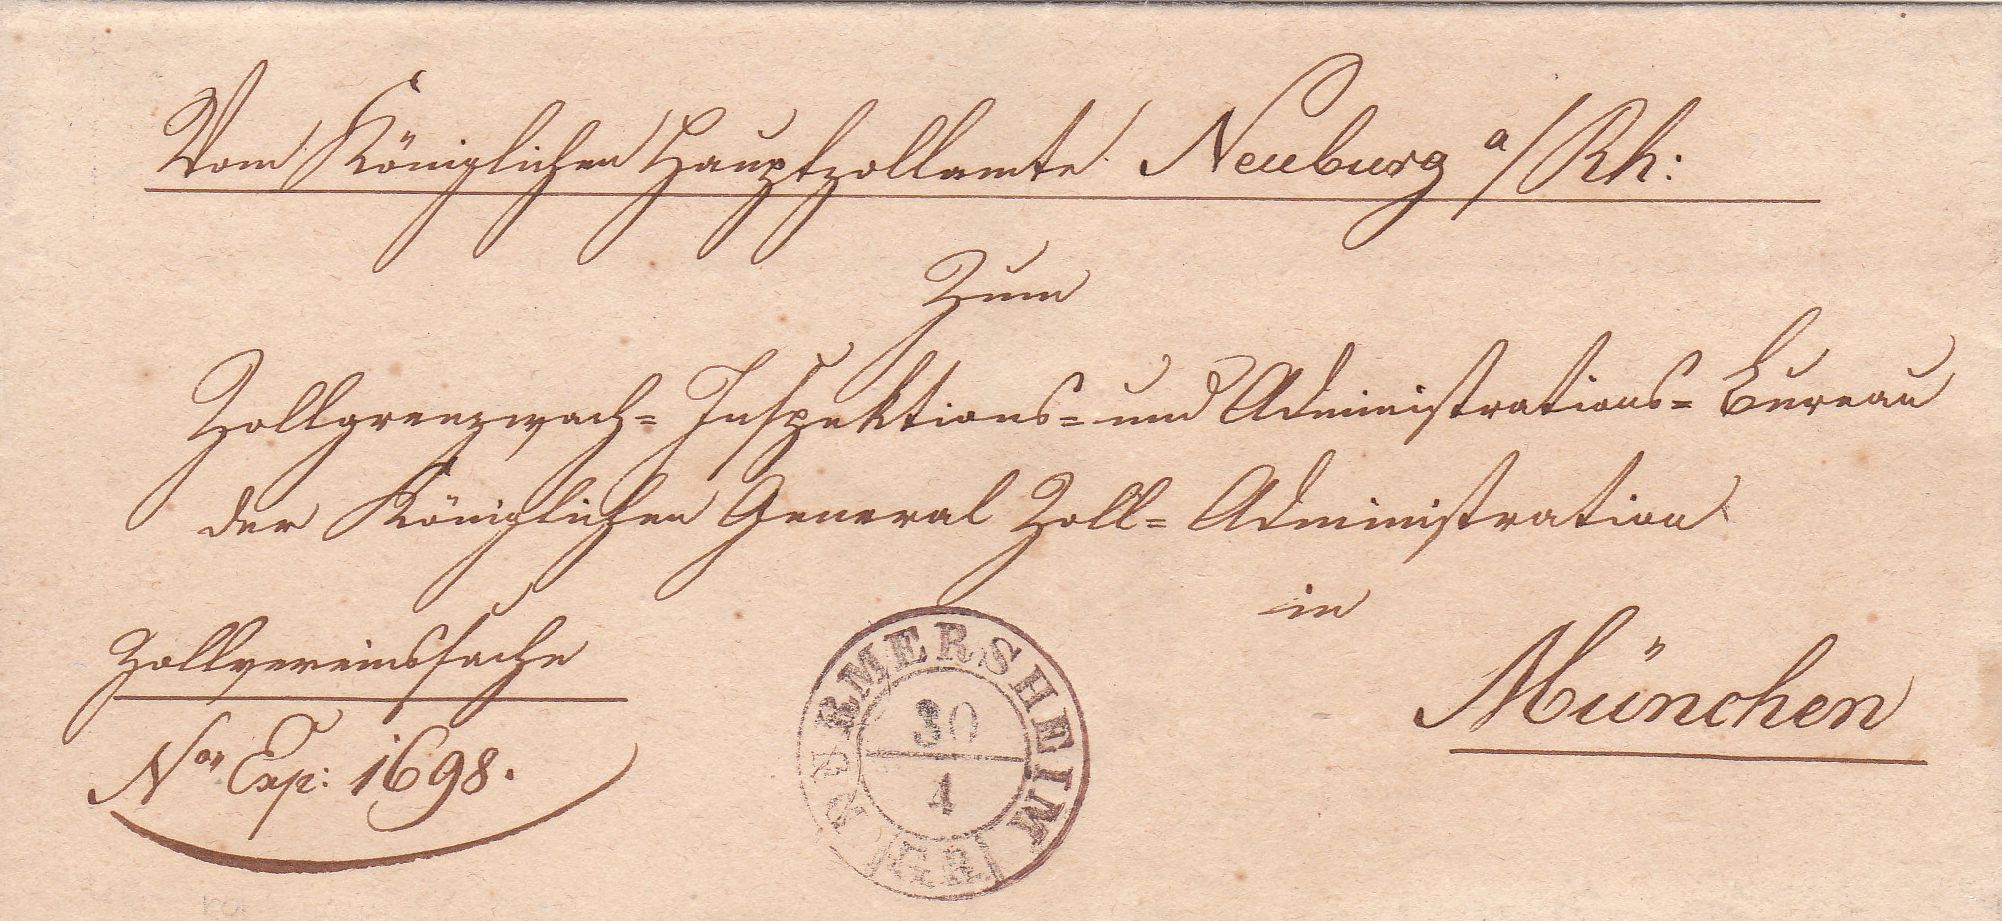 Vom Königlichen Hauptzollamte Neuburg a/Rh:
Zum
Zollgrenzwach= Inspektions= und Administrations= Bureau
der Königlichen General Zoll= Administration
in
München
Zollvereinssache
Nor Exp: 1698.
DURMERSHEIM
30
4